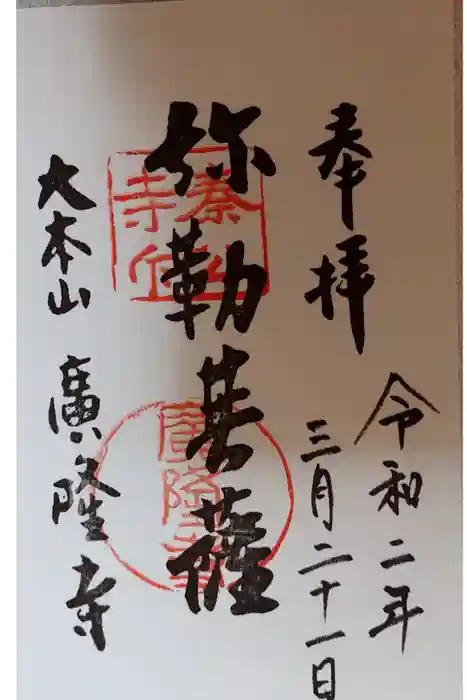 奉拝
令和二年
三月二十一日
弥勒菩薩
大本山 廣隆寺
廣隆寺